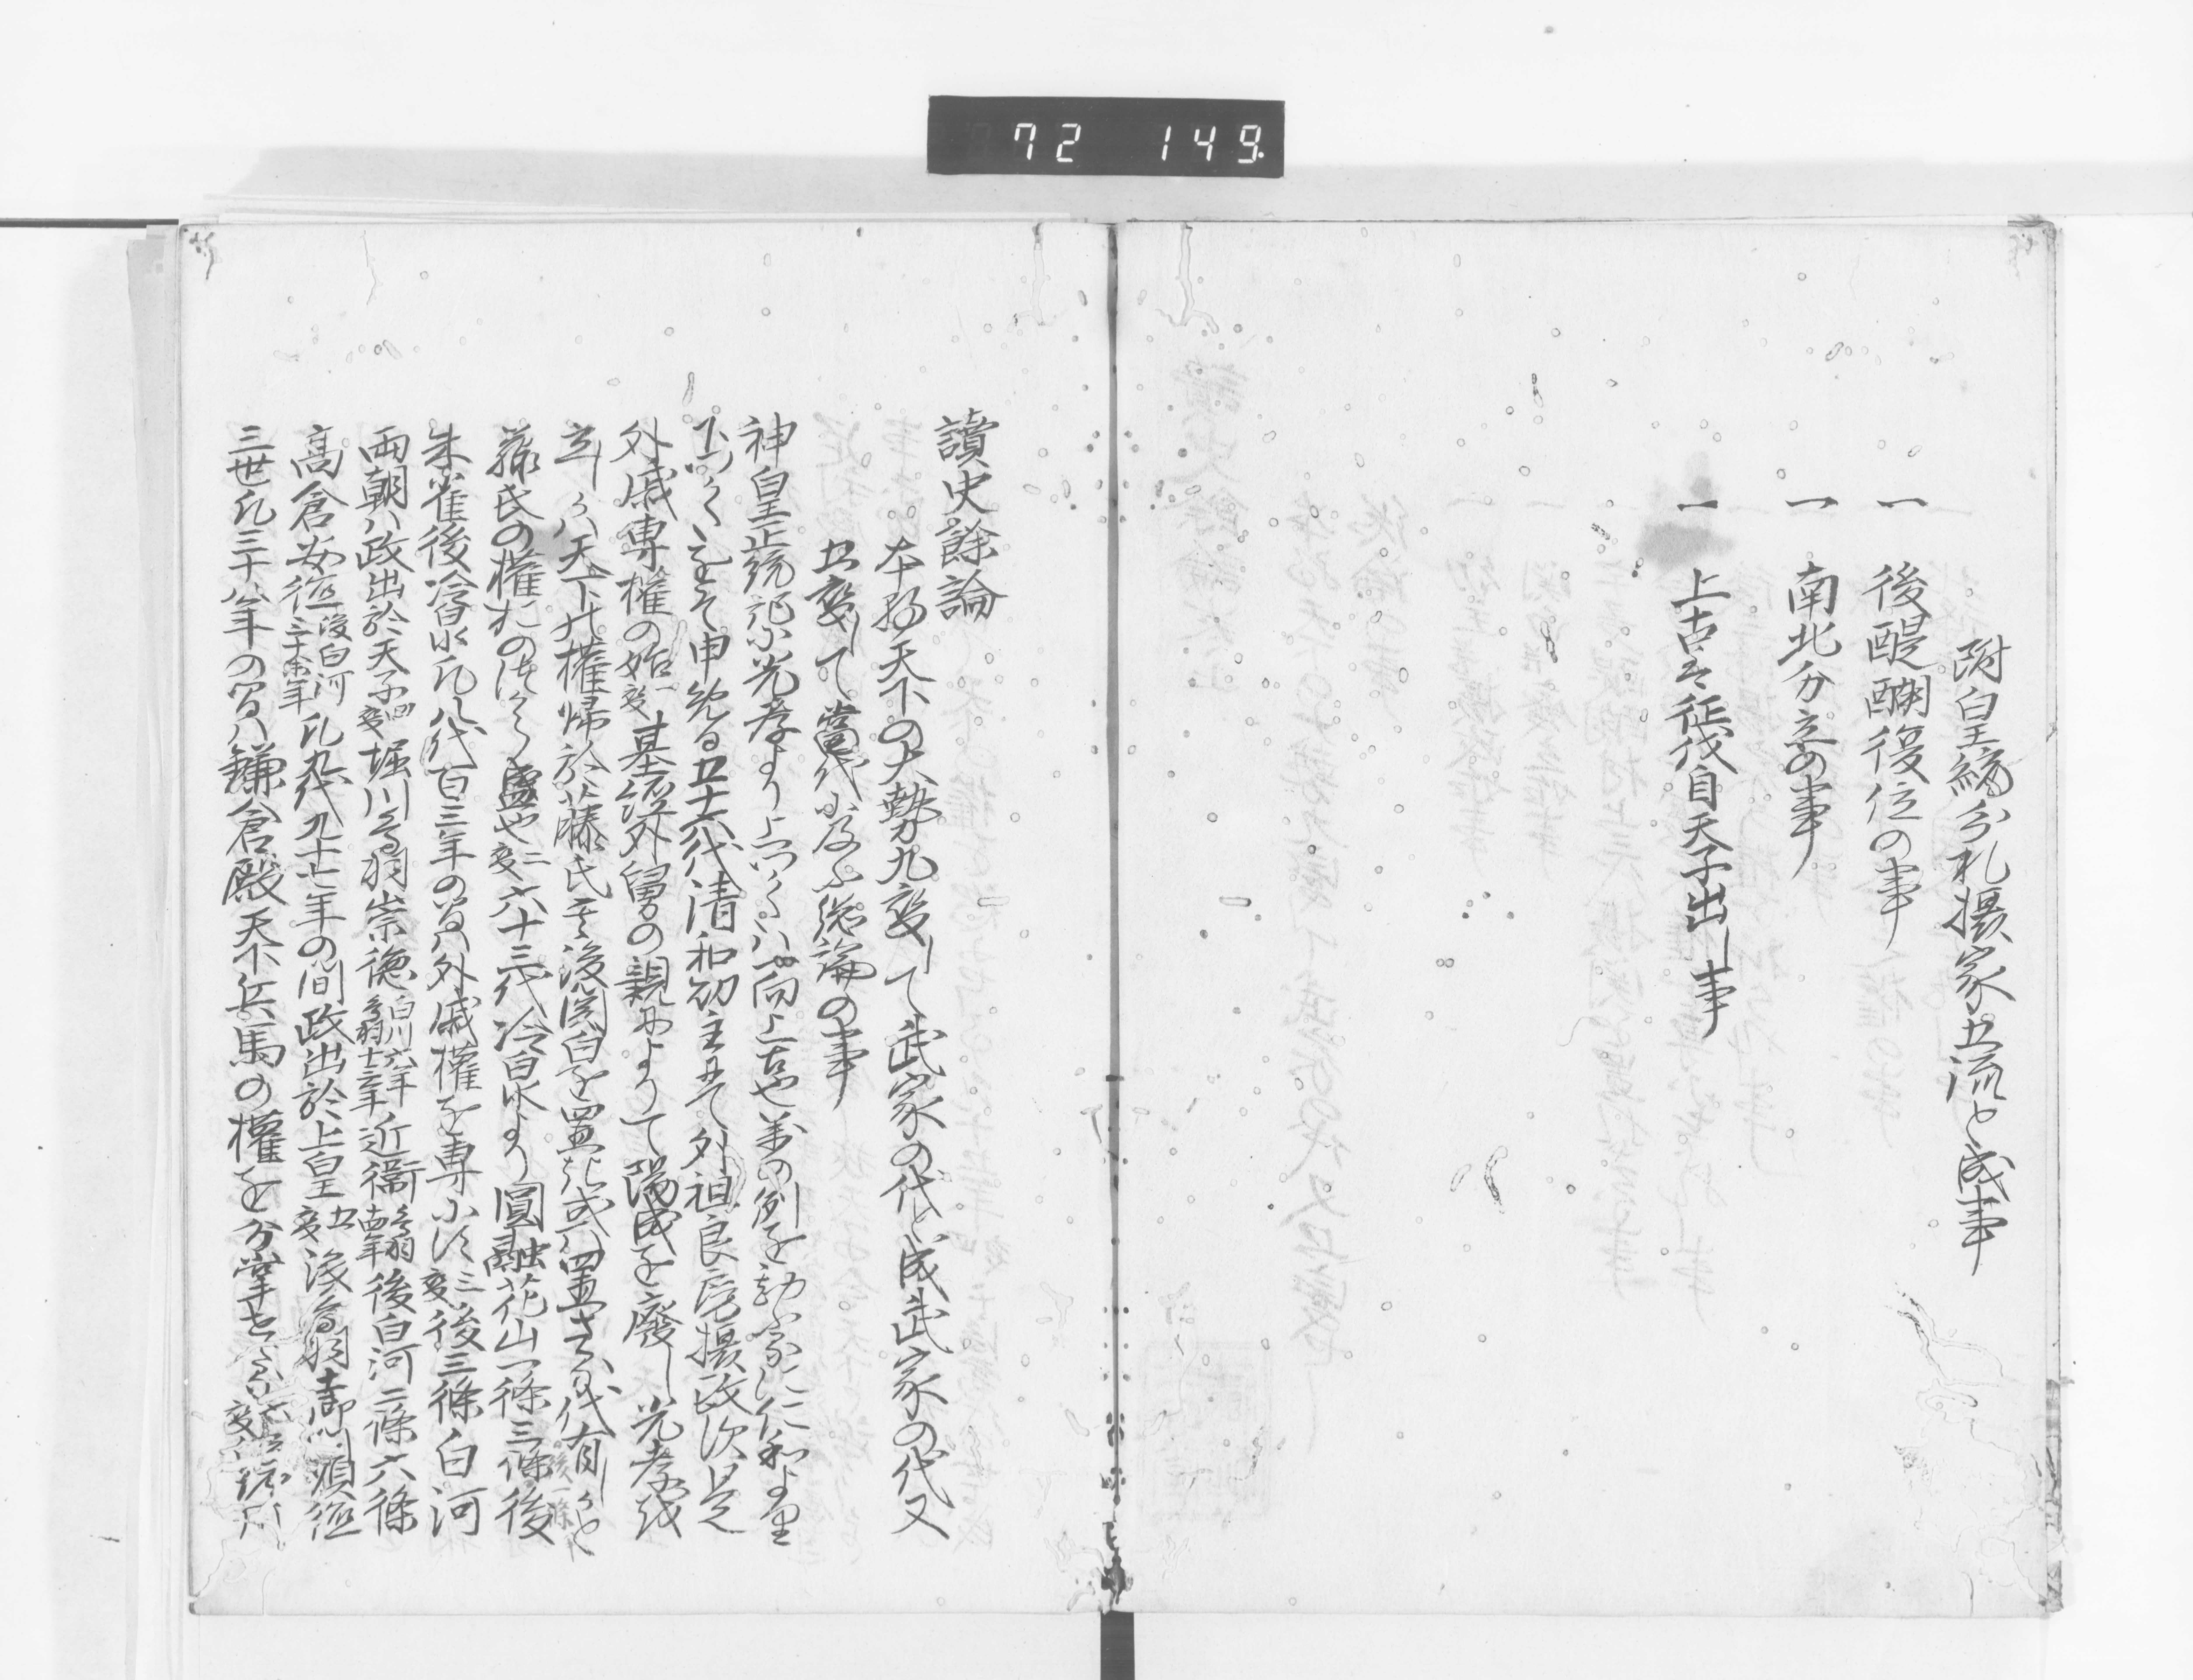 72 149
附皇統分れ摂家五流と成事
一 後醍醐復位の事
一 南北分立の事
一 上古は征伐自天子出し事
讀史餘論
本朝天下の大勢九変して武家の代と成武家の代又
五変して當代に及ふ総論の事
神皇正統記に光孝より上つかたは一向上古也萬の例を勘るに仁和より
下つかたをそ申める五十六代清和幼主にて外祖良房摂政次是
外戚専権の始一変基経外舅の親によりて陽成を廃し光孝を
立しかは天下の権帰於藤氏其後関白を置或は置さる代有しかと
藤氏の権おのつから盛也二変六十三代冷泉より圓融花山一條三條後一條後
朱雀後冷泉凡八代百三年の間は外戚権を専にす三変後三條白河
両朝は政出於天子四変堀川鳥羽崇徳近衛後白河二條六條
高倉安徳後白河三十余年凡九代九十七年の間政出於上皇五変後鳥羽土御門順徳
三世凡三十八年の間は鎌倉殿天下兵馬の権を分掌せらる六変